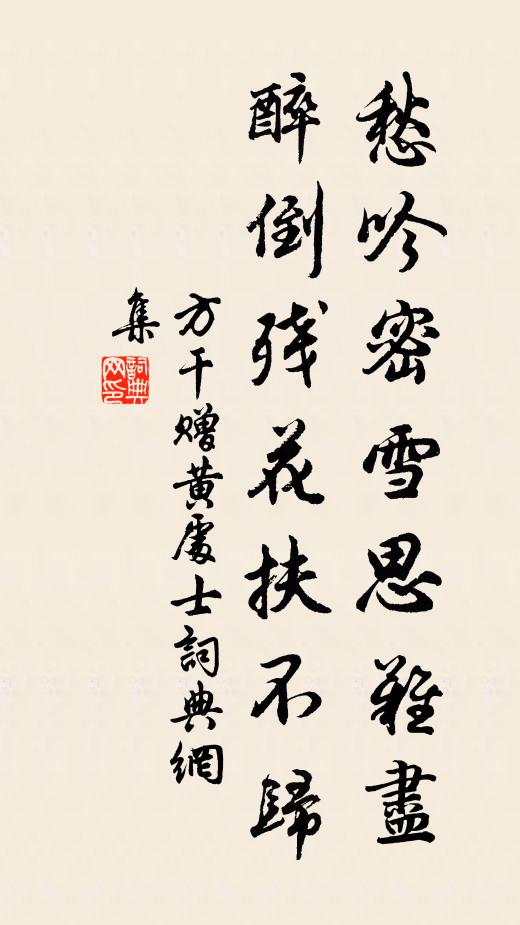 愁吟密雪思難盡
醉倒残花扶不歸
方干贈黃處士詞典網
集
詞典
网印